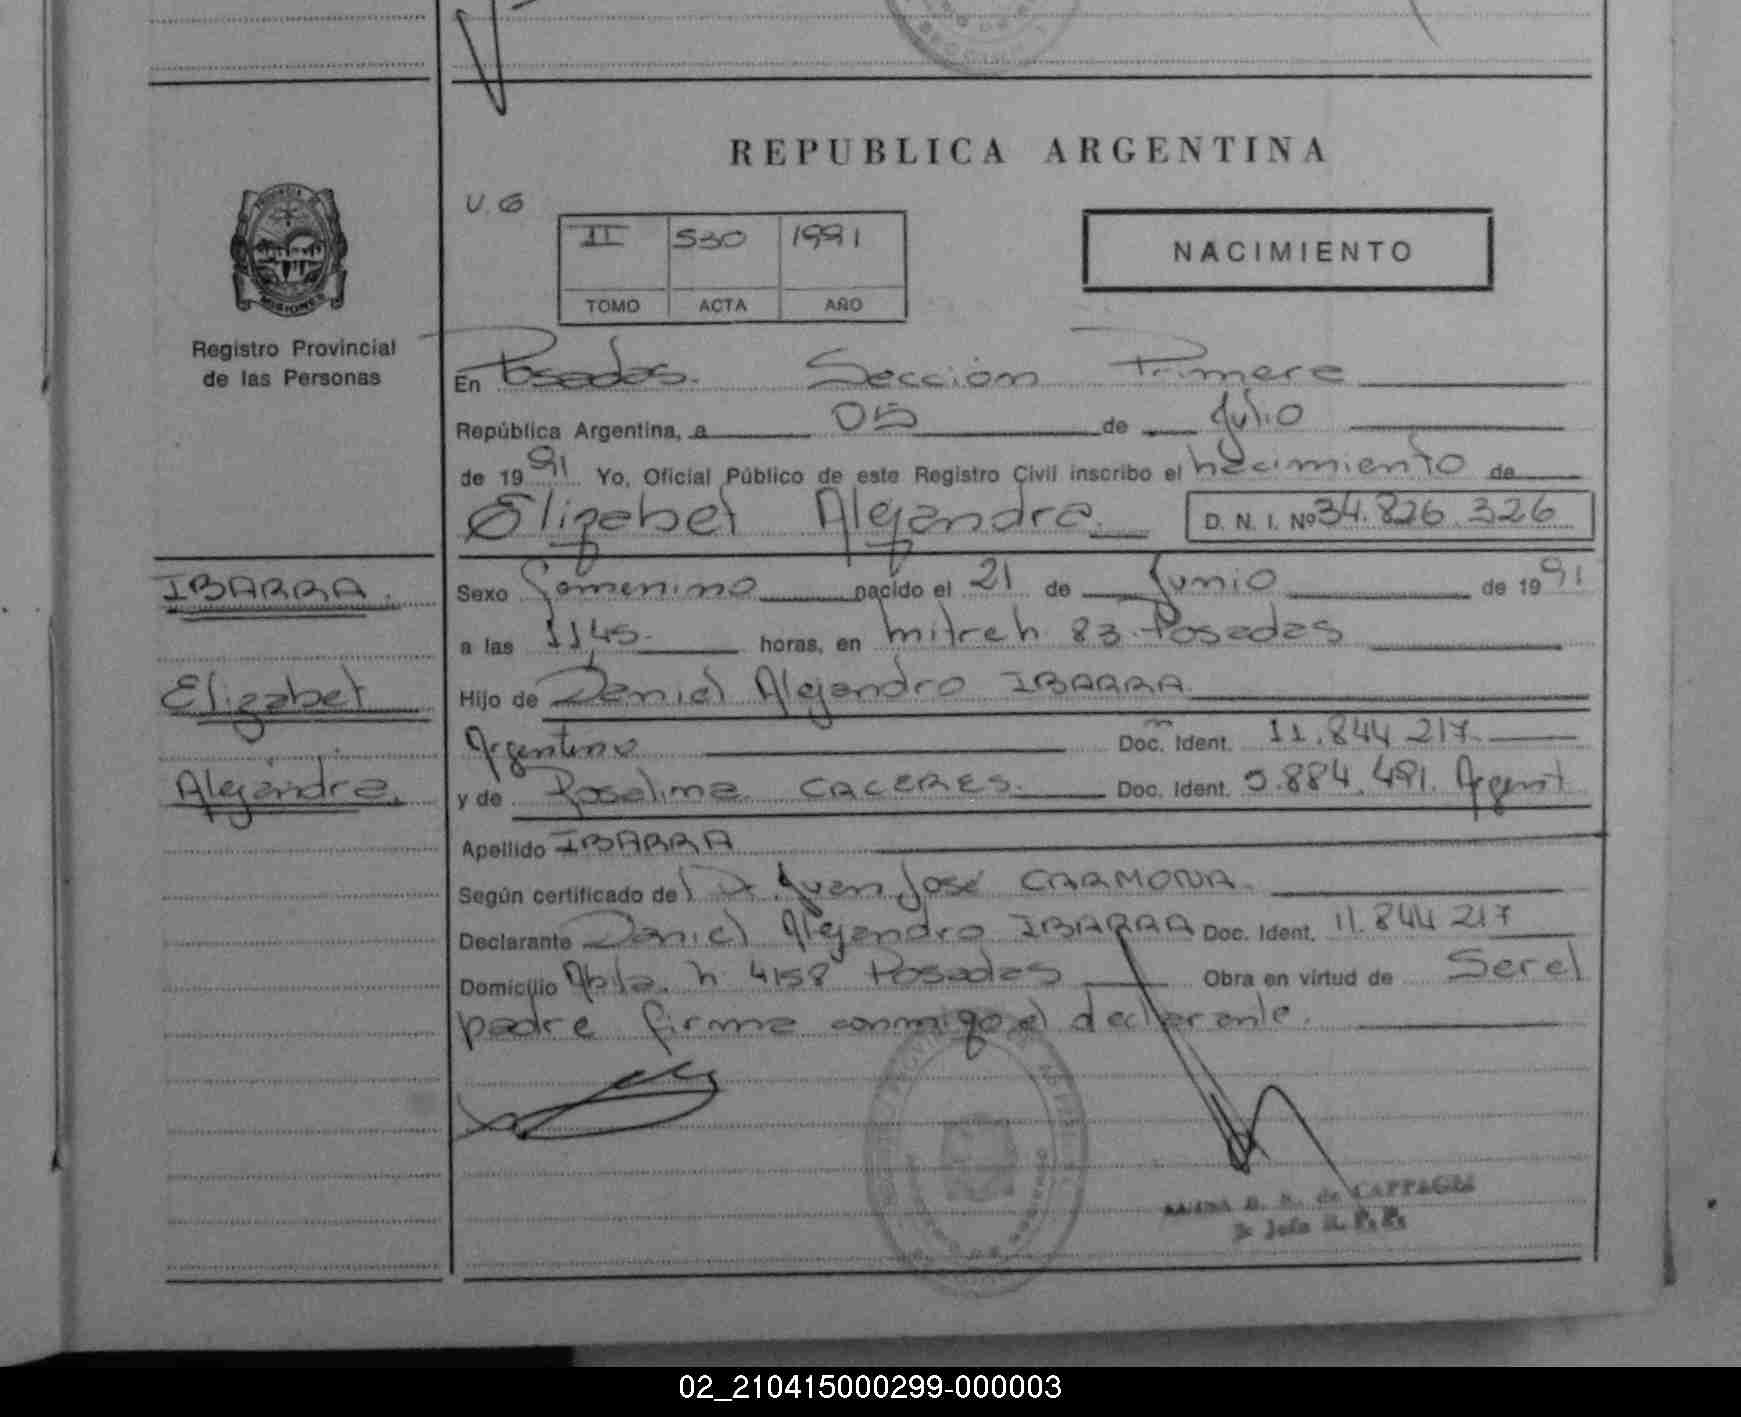 REPUBLICA ARGENTINA
U. G
II 530 1991
TOMO ACTA AÑO
NACIMIENTO
MISIONES
Registro Provincial
de las Personas
En Posadas. Sección Primera
República Argentina, a 05 de Julio
de 1991 Yo, Oficial Público de este Registro Civil inscribo el nacimiento de
Elizabet Alejandra. D. N. I. Nº 34.826.326
IBARRA.
Elizabet
Alejandra.
Sexo Femenino nacido el 21 de Junio de 1991
a las 11,45. horas, en mitre h 83. Posadas
Hijo de Daniel Alejandro IBARRA.
Argentino Doc. Ident. 11.844 217.
y de Roselina CACERES. Doc. Ident. 5.884.491. Argent
Apellido IBARRA
Según certificado del Dr. Juan José CARMONA.
Declarante Daniel Alejandro IBARRA Doc. Ident. 11.844 217
Domicilio h 4158 Posadas Obra en virtud de Ser el
padre firma conmigo el declarante.
de CAPPAGLI
02_210415000299-000003